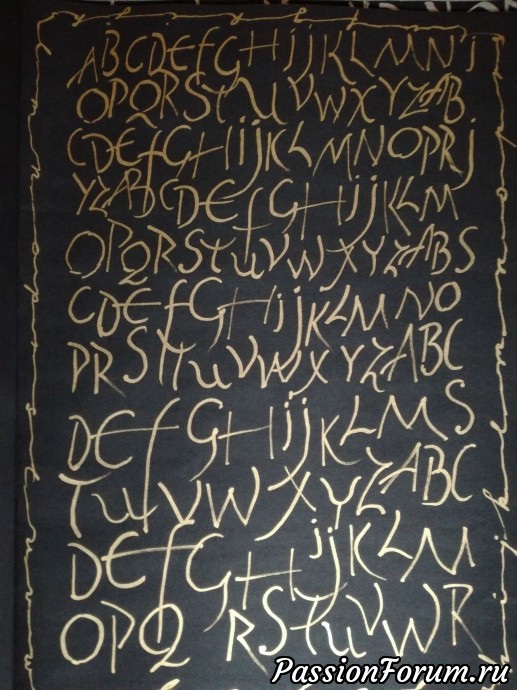 ABCDEfGHijKLMNj
OPQRStUVWXYZAB
CDEfGHijKLMNOPRj
YZABCDEfGHijKLM
OPQRStuVWXYZABS
CDEfGHijKLMNO
PRSTtuVWXYZABC
DEfGHijKLMS
TuVWXYZABC
DEfGHijKLM
OPQRStuVWR
PassionForum.ru